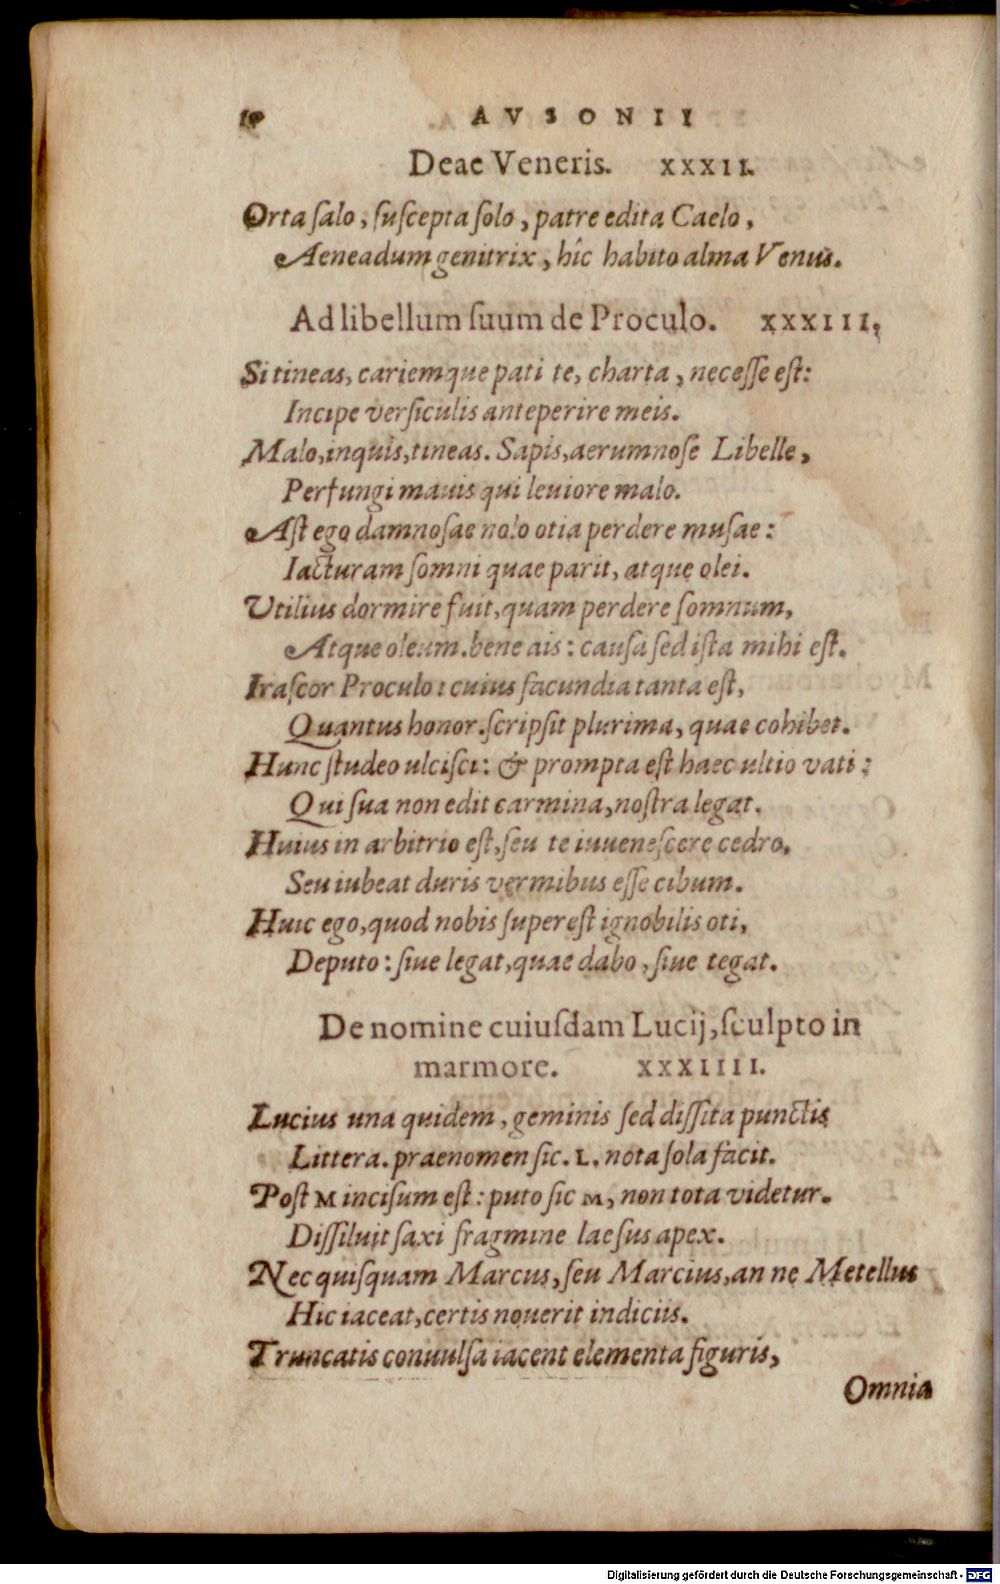 AVSONII
Deae Veneris. XXXII.
Orta ſalo, ſuſcepta ſolo, patre edita Caelo,
Aeneadum genitrix, hîc habito alma Venus.
Ad libellum ſuum de Proculo. XXXIII.
Si tineas, cariemque pati te, charta, neceſſe eſt:
Incipe verſiculis ante perire meis.
Malo, inquis, tineas. Sapis, aerumnoſe Libelle,
Perfungi mauis qui leuiore malo.
Aſt ego damnoſae nolo otia perdere muſae:
Iacturam ſomni quae parit, atque olei.
Vtilius dormire fuit, quam perdere ſomnum,
Atque oleum. bene ais: cauſa ſed iſta mihi eſt.
Iraſcor Proculo: cuius facundia tanta eſt,
Quantus honor. ſcripſit plurima, quae cohibet.
Hunc ſtudeo ulciſci: & prompta eſt haec ultio vati:
Qui ſua non edit carmina, noſtra legat.
Huius in arbitrio eſt, ſeu te iuueneſcere cedro,
Seu iubeat duris vermibus eſſe cibum.
Huic ego, quod nobis ſupereſt ignobilis oti,
Deputo: ſiue legat, quae dabo, ſiue tegat.
De nomine cuiuſdam Lucij, ſculpto in
marmore. XXXIIII.
Lucius una quidem, geminis ſed diſſita punctis
Littera. praenomen ſic. L. nota ſola facit.
Poſt M inciſum eſt: puto ſic M, non tota videtur.
Diſſiluit ſaxi fragmine laeſus apex.
Nec quiſquam Marcus, ſeu Marcius, an ne Metellus
Hic iaceat, certis nouerit indiciis.
Truncatis conuulſa iacent elementa figuris,
Omnia
Digitalisierung gefördert durch die Deutsche Forschungsgemeinschaft - DFG